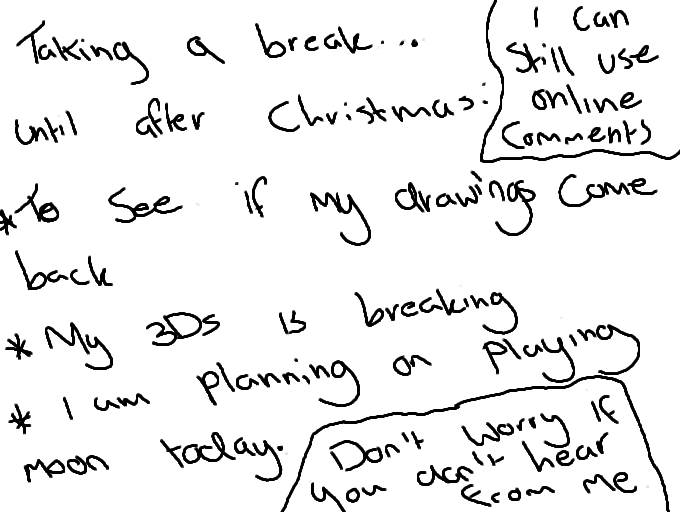 Taking a break...
until after Christmas:
I can
Still use
online
Comments
*To See if my drawings Come
back
* My 3Ds is breaking
* I am planning on Playing
moon today.
Don't Worry If
you don't hear
From me